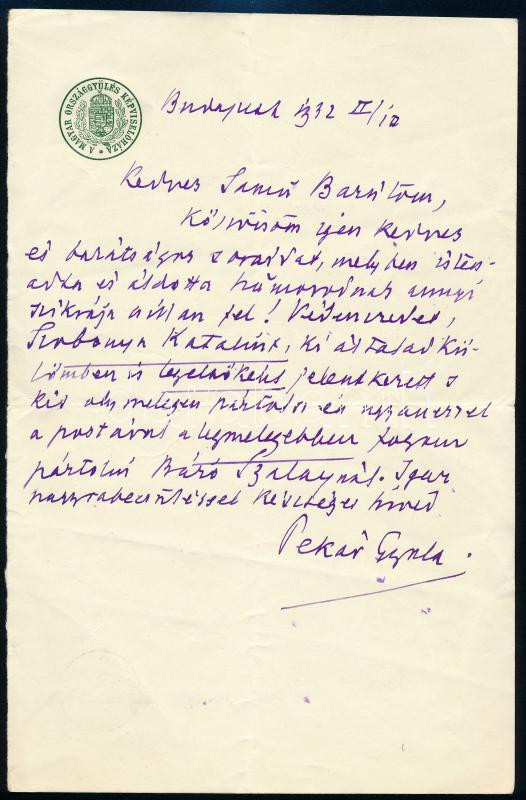 A MAGYAR ORSZÁGGYÜLÉS KÉPVISELŐHÁZA
Budapest 1932 II/12
Kedves Samu Barátom,
Köszönöm igen kedves
és barátságos soraidat, melyben isten-
adta és áldotta humorodnak annyi
szikrája villan fel! Védencedet,
Szobonya Katalint, ki általad kü-
lömben is legelsőként jelentkezett s
kit oly melegen pártolsz én ugyanezzel
a postával a legmelegebben fogom
pártolni Báró Szalaynál. Igaz
nagyrabecsüléssel készséges híved
Pekár Gyula.